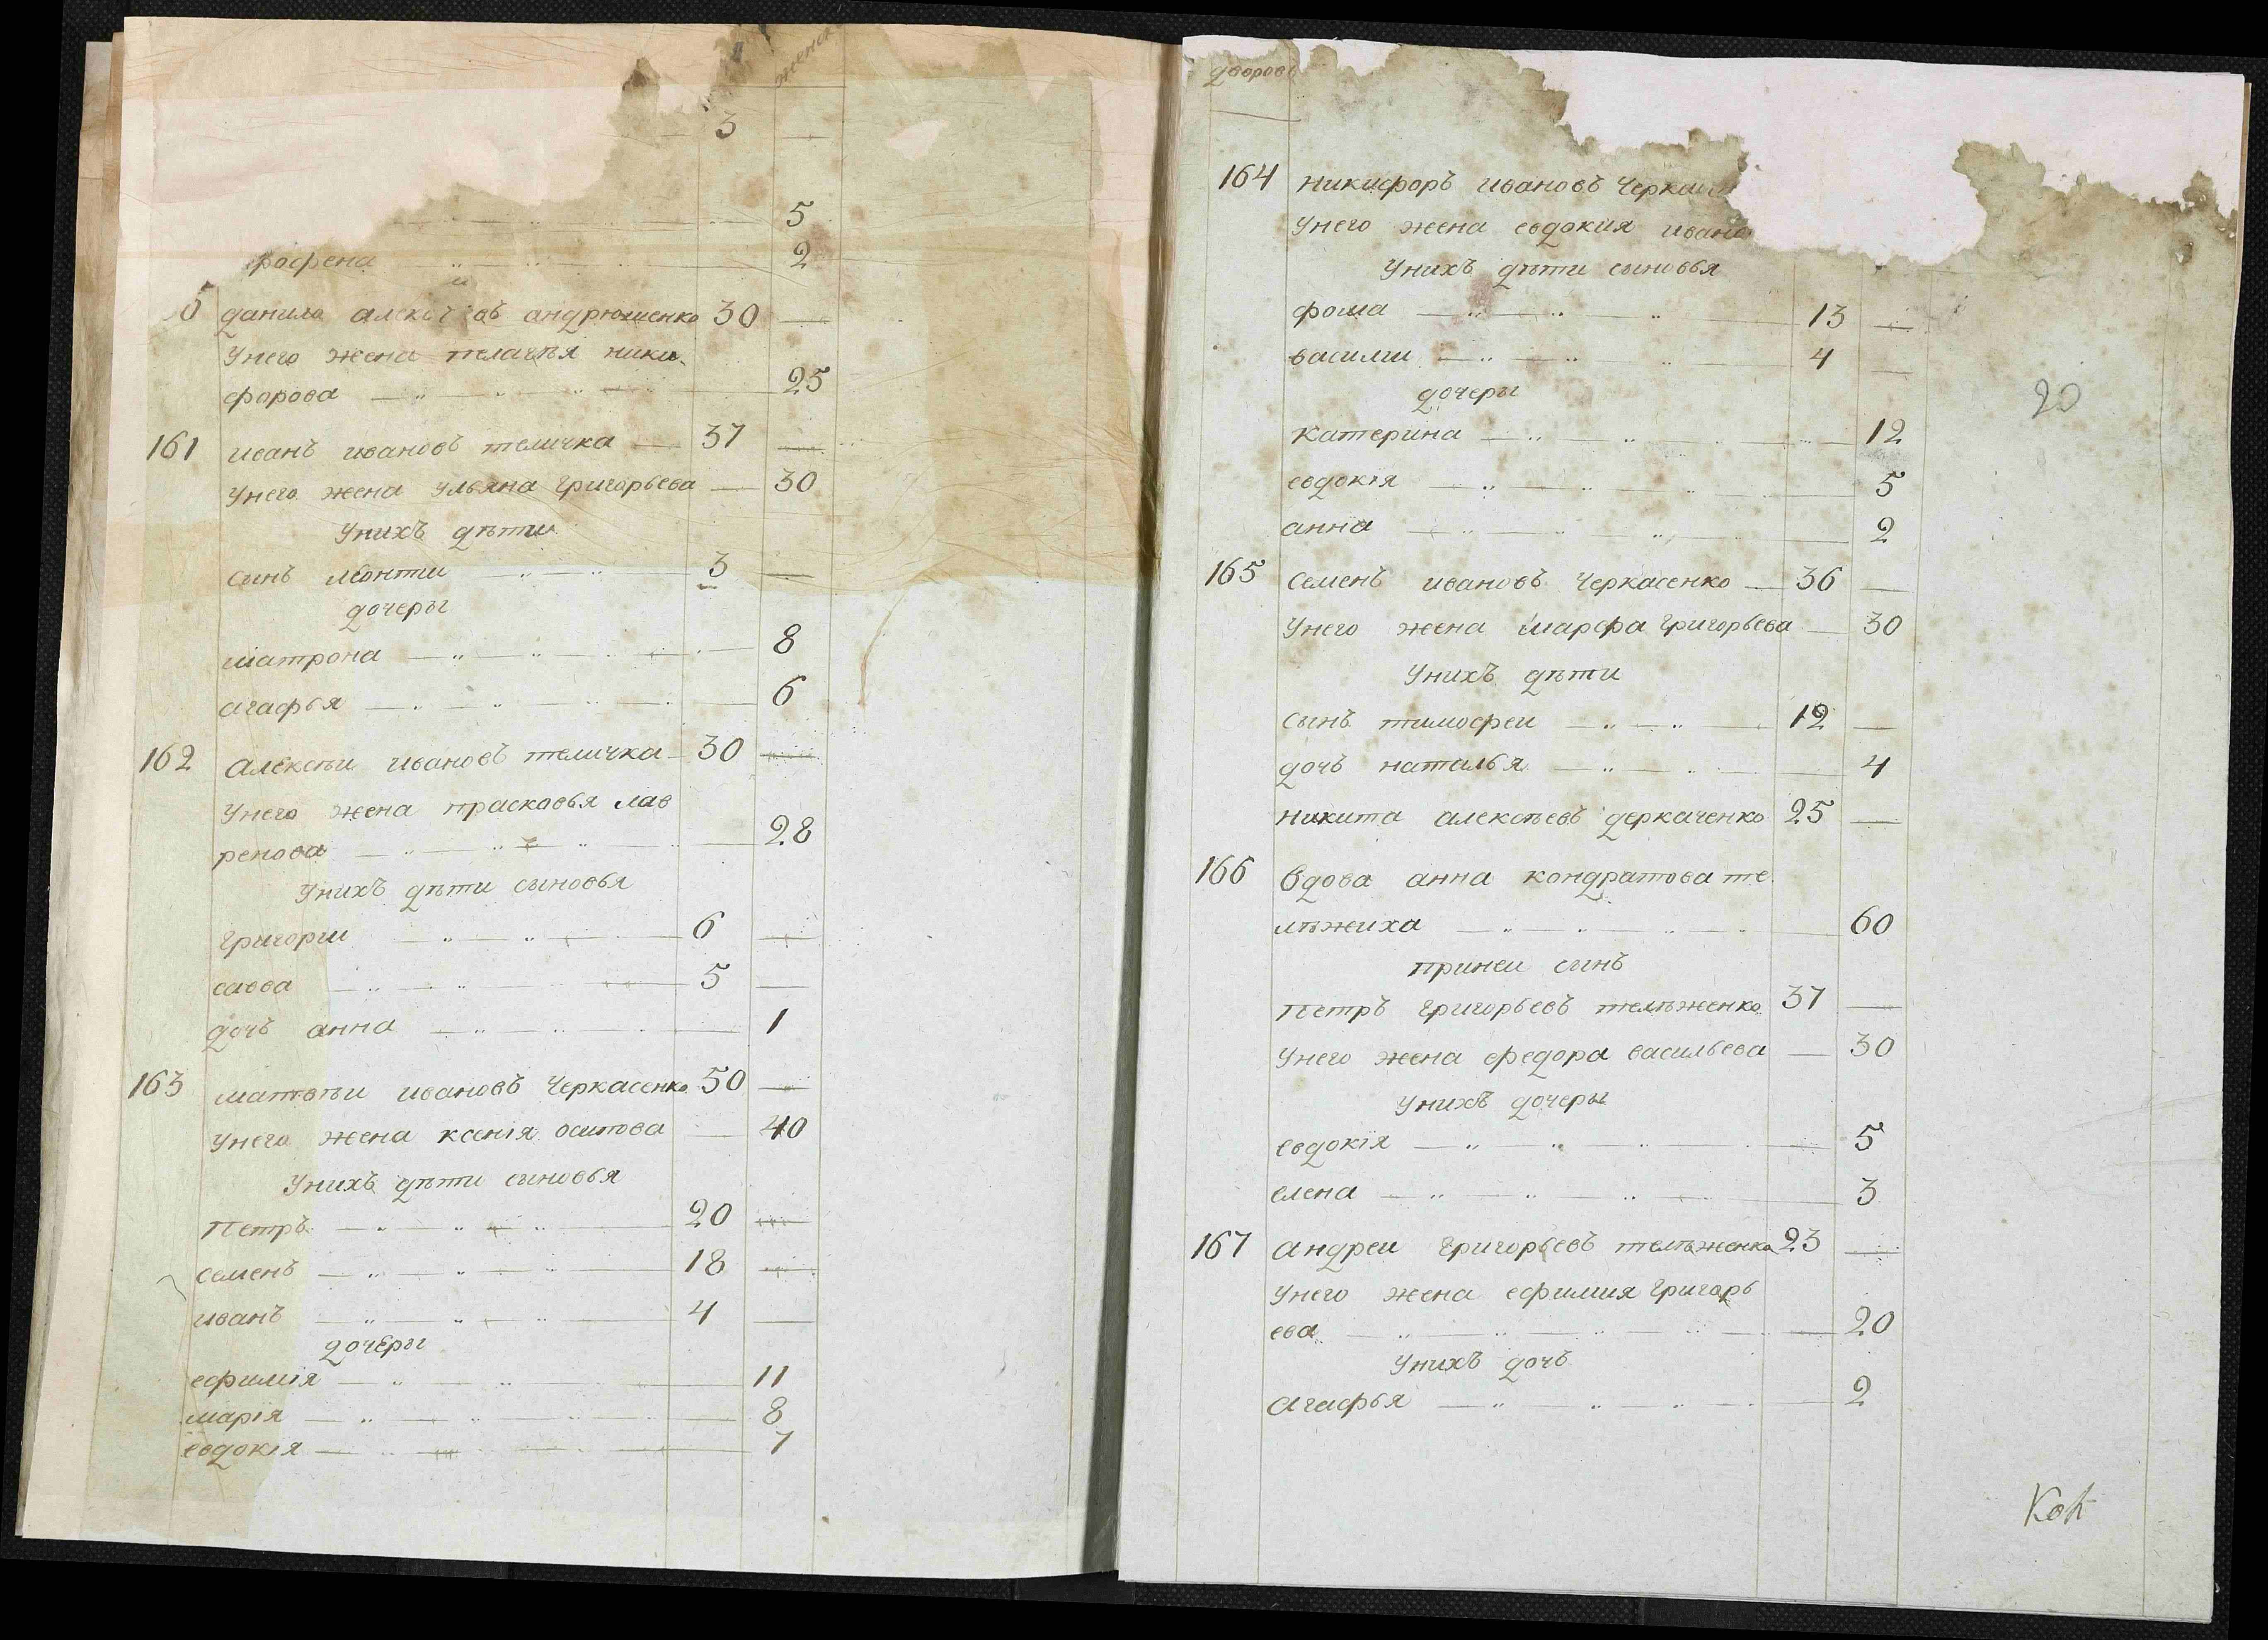 женск
3
5
фосфена 2
данило андрюшенко 30
унего жена пелагѣя ники
форова 25
161 иванъ ивановъ теличка 37
унего жена ульяна григорьева 30
унихъ дѣти
сынъ леонти 3
дочеры
матрона 8
агафья 6
162 алексѣи ивановъ теличка 30
унего жена прасковья лав
ренова 28
унихъ дѣти сыновья
григории 6
савва 5
дочъ анна 1
163 матвѣи ивановъ черкасенко 50
унего жена ксенія осипова 40
унихъ дѣти сыновья
петръ 20
семенъ 18
иванъ 4
дочеры
ефимія 11
марія 8
евдокія 7
дворовъ
164 никифоръ ивановъ
унего жена евдокия
унихъ дѣти сыновья
фома 13
василии 4
дочеры
20
катерина 12
евдокія 5
анна 2
165 семенъ ивановъ черкасенко 36
унего жена марфа григорьева 30
унихъ дѣти
сынъ тимофеи 12
дочъ наталья 4
никита алексѣевъ деркаченко 25
166 вдова анна кондратова те
лѣжиха 60
принеи сынъ
петръ григорьевъ телѣженко 37
унего жена федора васильева 30
унихъ дочеры
евдокія 5
елена 3
167 андреи григорьевъ телѣженко 23
унего жена ефимия григорь
ева 20
унихъ дочъ
агафья 2